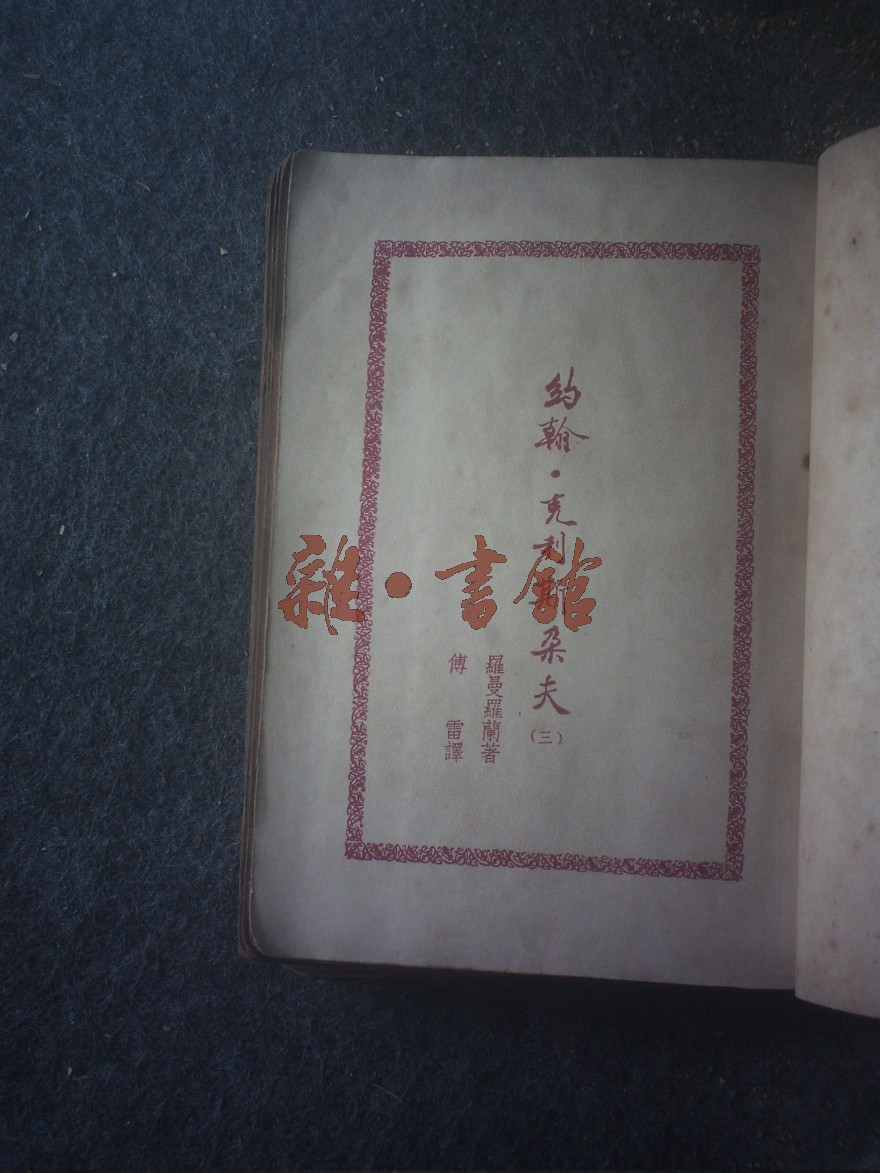 約翰·克利斯朵夫
(三)
羅曼羅蘭著
傅雷譯
雜·書館